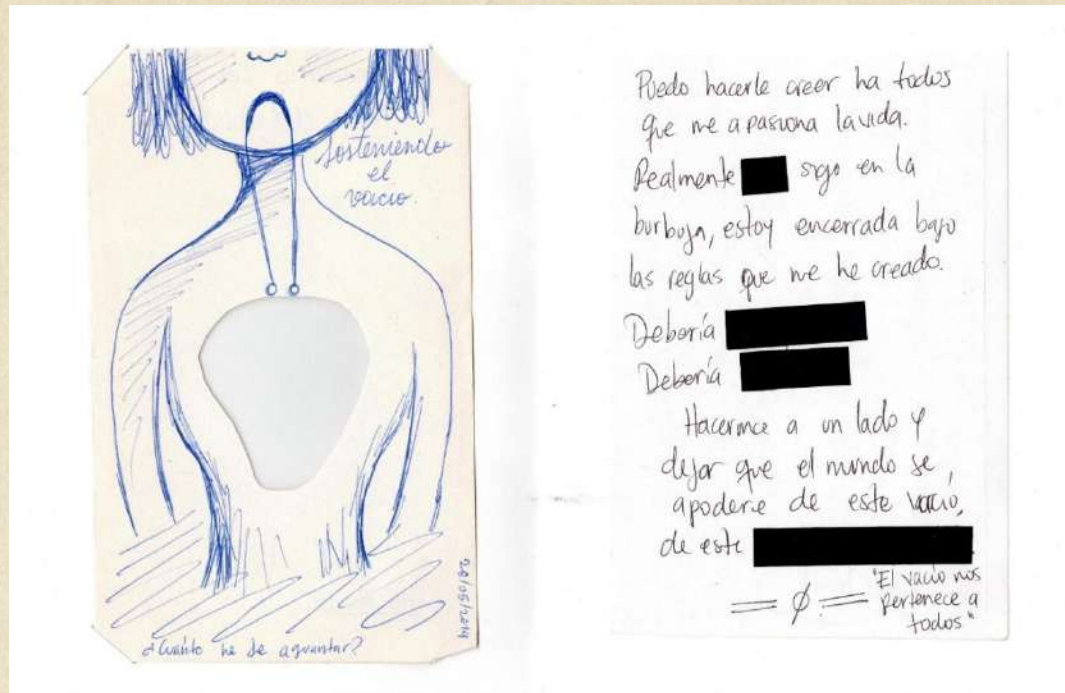 Sosteniendo
el
vacio.
¿Cuánto he de aguantar?
20/05/2014
Puedo hacerle creer ha todos
que me apasiona la vida.
Realmente sigo en la
burbuja, estoy encerrada bajo
las reglas que me he creado.
Debería
Debería
Hacerme a un lado y
dejar que el mundo se
apodere de este vacío,
de este
= ∅ =
"El vacío nos
pertenece a
todos"